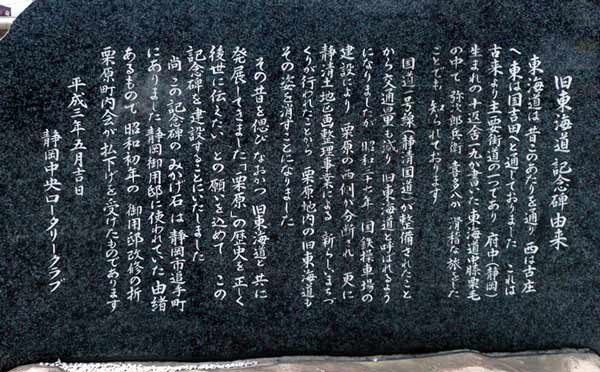 旧東海道記念碑由来
東海道は昔このあたりを通り 西は古庄
へ 東は国吉田へと通じておりました これは
古来より主要街道の一つであり 府中(静岡)
生まれの十返舎一九が書いた東海道中膝栗毛
の中で 弥次郎兵衛 喜多八が 滑稽な旅をした
ことでも 知られております
国道一号線(静清国道)が整備されたこと
から交通の量も減り 旧東海道と呼ばれるよう
になりましたが 昭和三十七年 国鉄操車場の
建設により 栗原の西側が分断され 更に
静清土地区画整理事業による 新らしいまちづ
くりが行われたことから栗原地内の旧東海道も
その姿を消すことになりました
その昔を偲び なおかつ 旧東海道と 共に
発展してきました「栗原」の歴史を 正しく
後世に伝えたい との願いを込めて この
記念碑を建設することにいたしました
尚 この記念碑の みかげ石は 静岡市追手町
にありました 静岡御用邸に使われていた 由緒
あるもので 昭和初年の 御用邸改修の折
栗原町内会が 払下げを受けたものであります
平成三年五月吉日
静岡中央ロータリークラブ